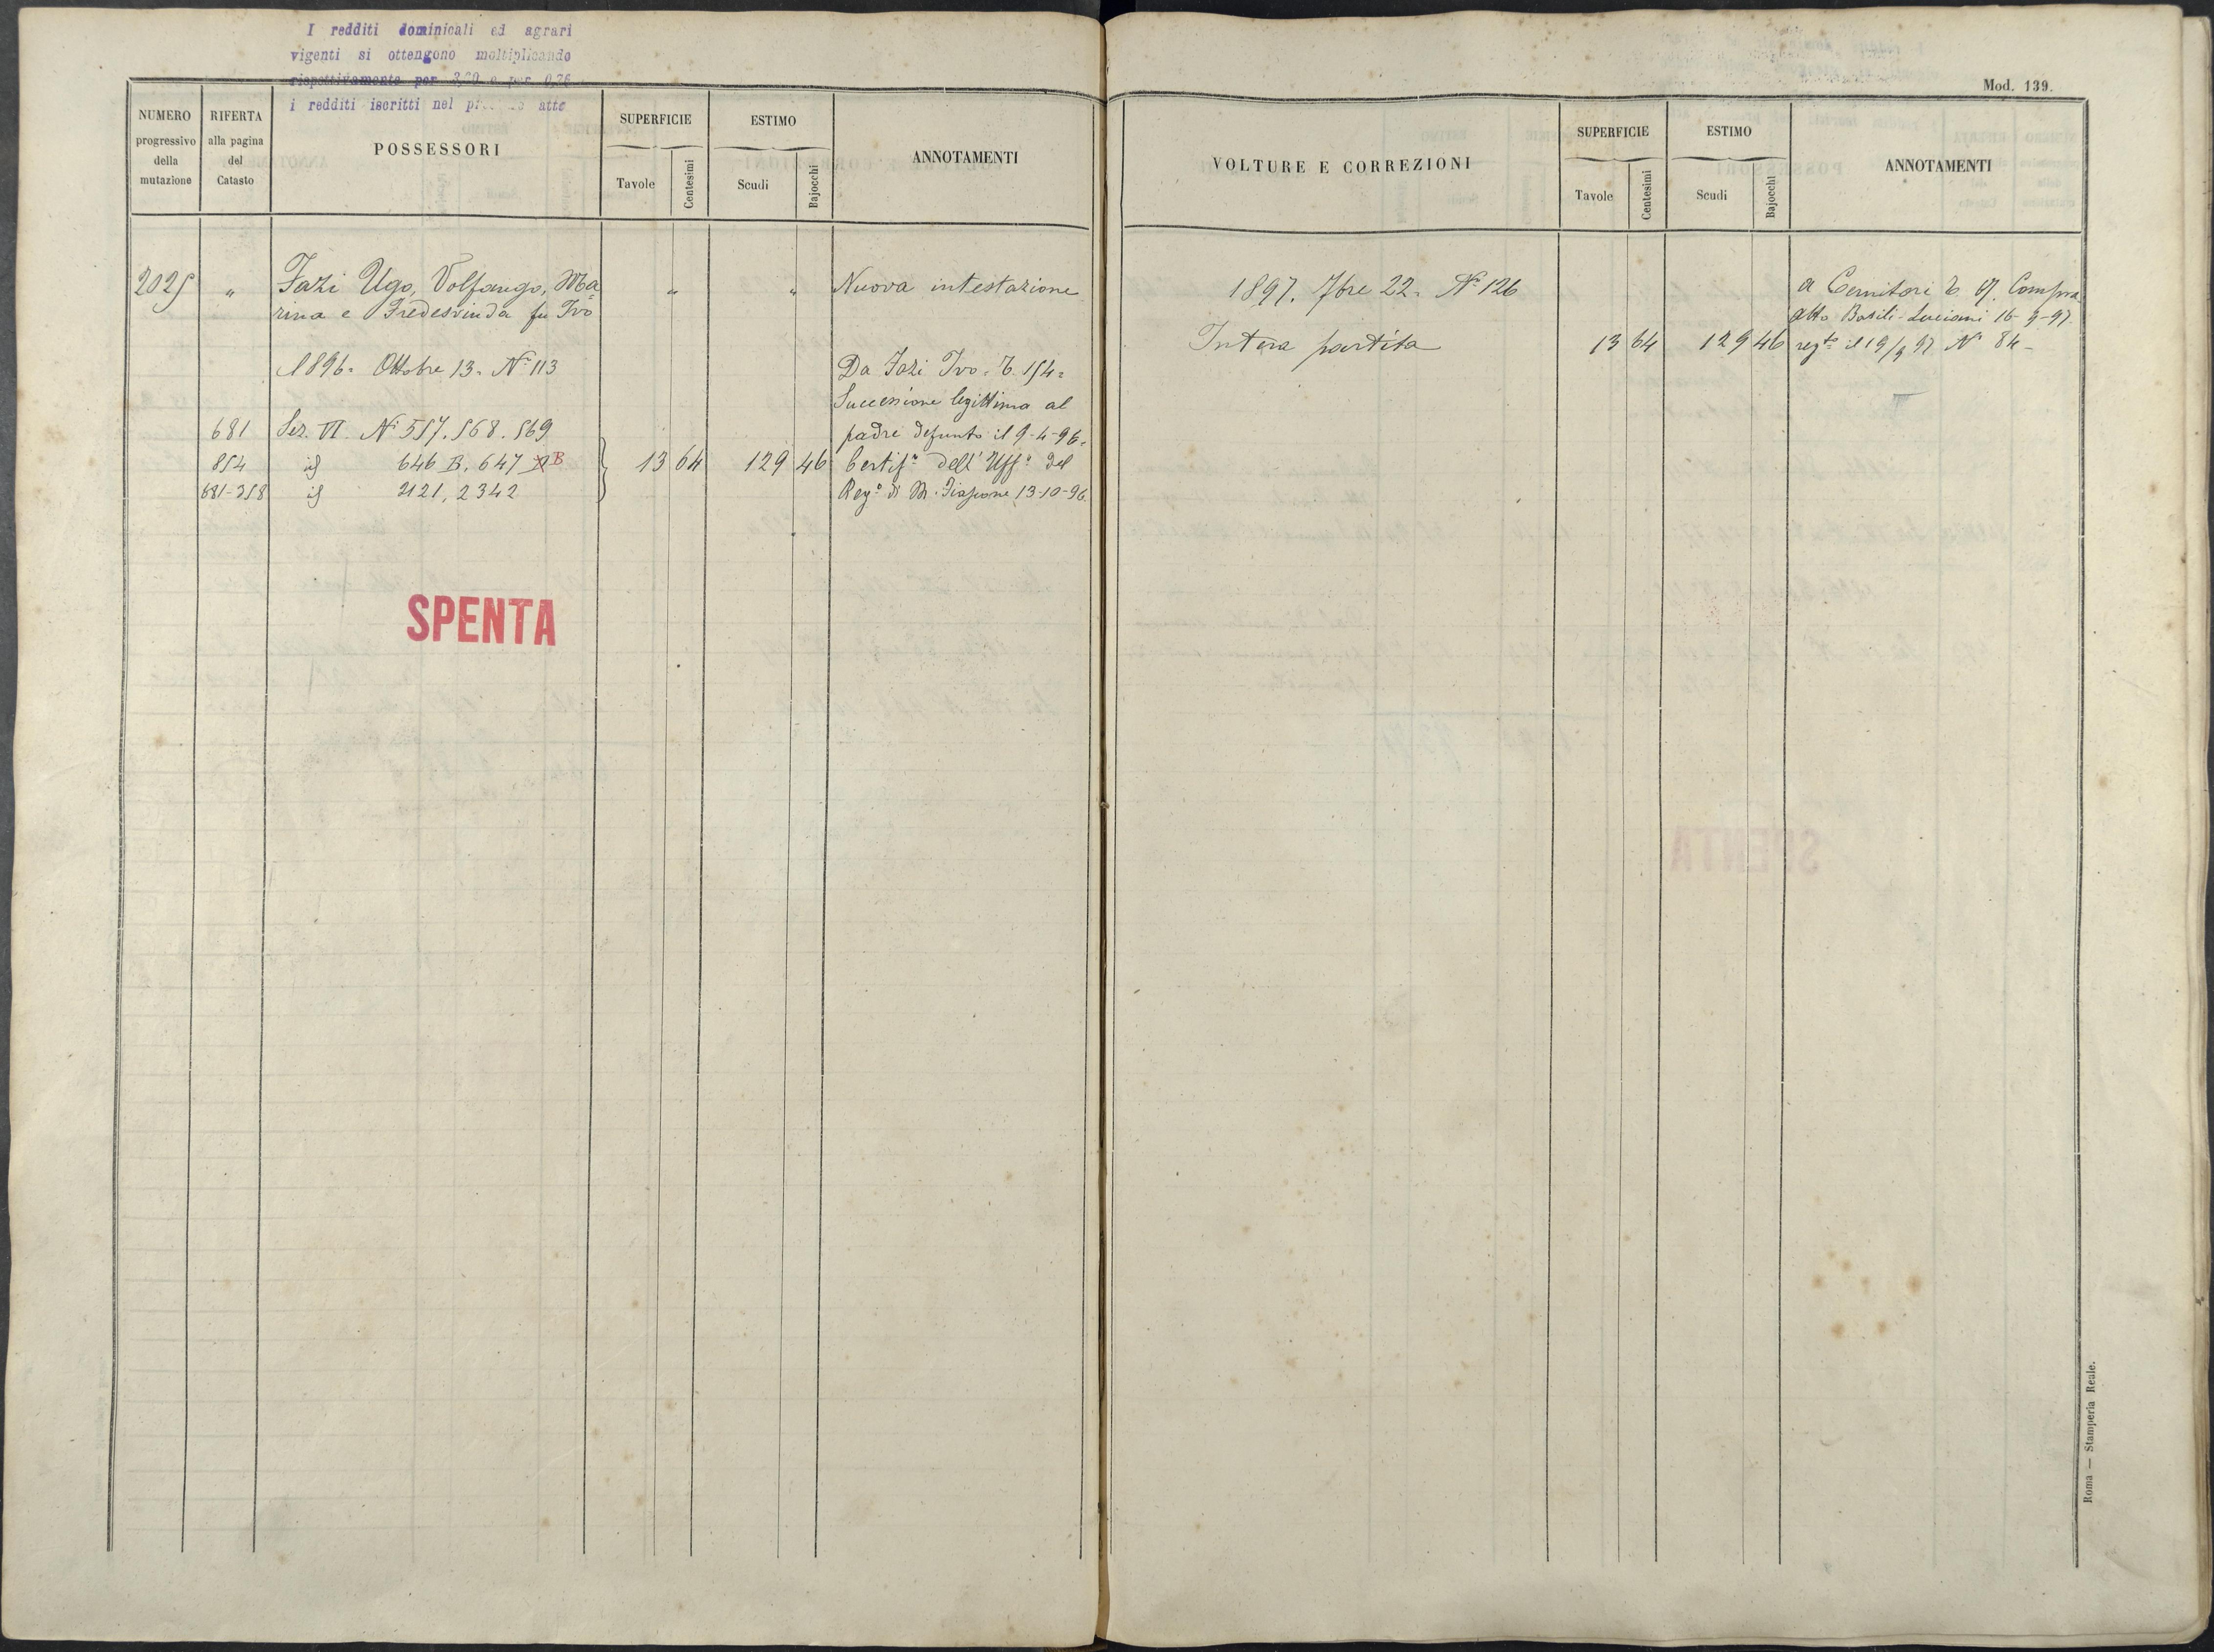 I redditi dominicali ed agrari
vigenti si ottengono moltiplicando
rispettivamente per 3,20 e per 0,76
i redditi iscritti nel atto
NUMERO
progressivo
della
mutazione
RIFERTA
alla pagina
del
Catasto
POSSESSORI
SUPERFICIE
Tavole
Centesimi
ESTIMO
Scudi
Bajocchi
ANNOTAMENTI
2025 " Fazi Ugo, Volfango, Ma= " " Nuova intestazione
rina e Fredesvinda fu Ivo
1896. Ottobre 13. N° 113 Da Fazi Ivo. T. 154=
Successione legittima al
681 Sez. VI. N° 557. 568. 569 padre defunto il 9-4-96=
854 id 646 B. 647 B 13 64 129 46 Certif° dell' Uff° del
681-358 id 2121, 2342 Reg° di M. Fiascone 13-10-96
SPENTA
Mod. 139.
VOLTURE E CORREZIONI
SUPERFICIE
Tavole
Centesimi
ESTIMO
Scudi
Bajocchi
ANNOTAMENTI
1897. 7bre 22. N° 126 a Cernitori T. Compra
atto Basili-Luciani 16-9-97.
Intera partita 13 64 129 46 regto il 19/9 97. N° 84-
Roma — Stamperia Reale.